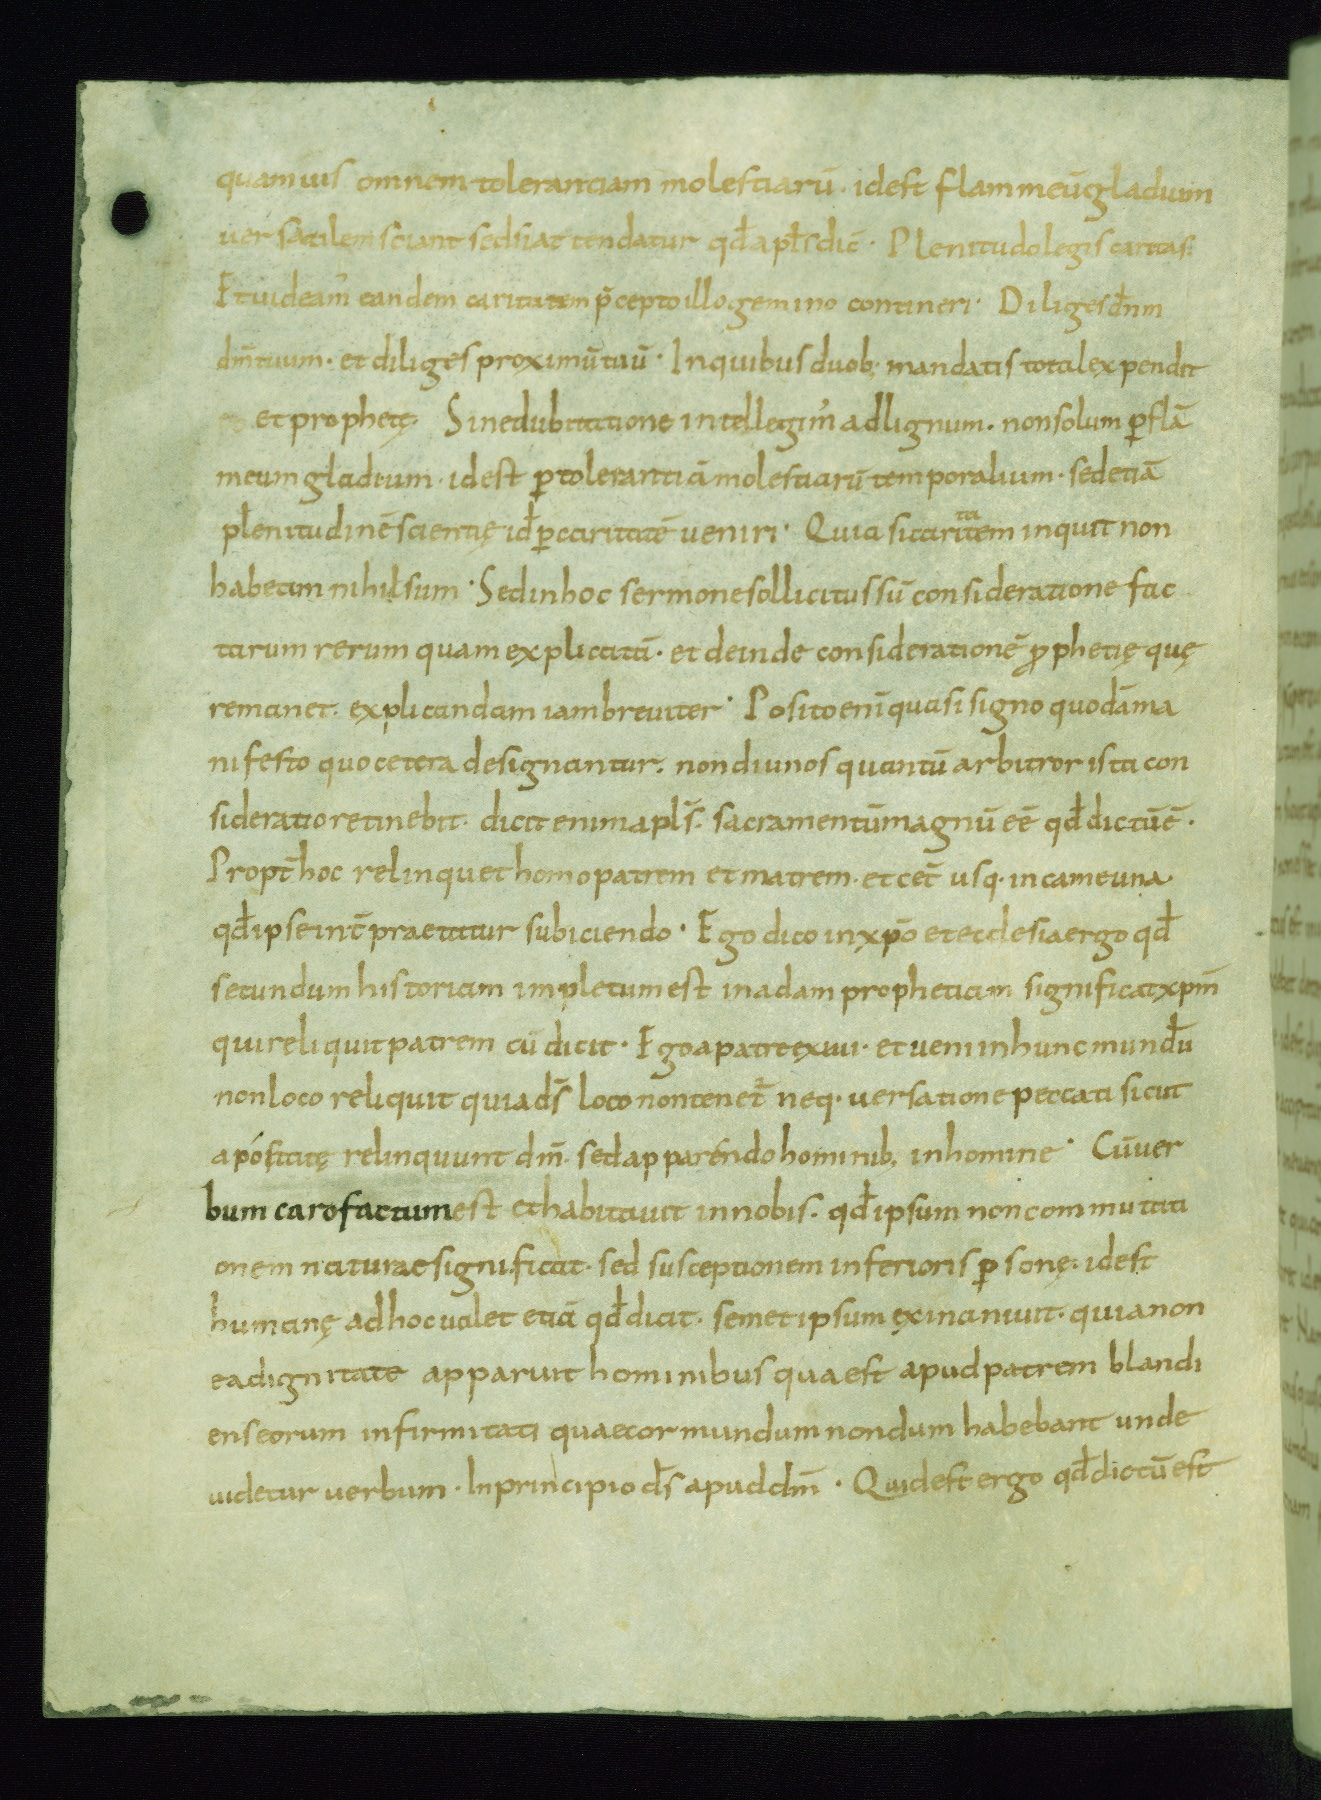 quamuis omnem tolerantiam molestiarū· idest flammeūgladium
uersatilem sciant sedsiat tendatur qđapłsdic̄· Plenitudolegis caritas·
Etuideam̄ eandem caritatem p̄ceptoillogemino contineri· Diligesdn̄m
dm̄tuum· et diliges proximūtuū· Inquibus duob; mandatis totalexpendit
et prophetę· Sinedubitatione intellegim̄ adlignum· nonsolum ꝑflā
meumgladium· idest ꝑtolerantiā molestiarū temporalium· sedetiā
plenitudinē scientię iđ ꝑcaritatē ueniri· Quia sicaritatem inquit non
habeam nihilsum· Sedinhoc sermonesollicitus sū consideratione fac
tarum rerum quam explicatā· et deinde considerationē ꝓphetię quę
remanet· explicandam iambreuiter· Posito enī quasi signo quodāma
nifesto quo cetera designantur· nondiunos quantū arbitror ista con
sideratio retinebit· dicit enimapls̄· sacramentūmagnū eē qđ dictūē·
Propt̄hoc relinquethomopatrem et matrem· etcet̄ usq· incarneuna·
qđipseint̄praetatur subiciendo· Ego dico inxpō etecclesiaergo qđ
secundum historiam impletumest inadam prophetiam significatxpm̄
quireliquitpatrem cū dicit· Egoapatreexiui· et ueni inhunc mundū
nonloco reliquit quiads̄ loco nontenet̄ neq· uersatione peccati sicut
apostatę relinquunt dm̄· sedapparendo hominib; inhomine· Cūuer
bum carofactumest ethabitauit innobis· qđipsum noncommutati
onem naturaesignificat· sed susceptionem inferioris ꝑsonę· idest
humanę adhocualet etiā qđdicit· semetipsum exinaniuit· quianon
eadignitate apparuit hominibus quaest apudpatrem blandi
enseorum infirmitati quaecormundum nondum habebant unde
uidetur uerbum· Inprincipio ds̄ apuddm̄· Quidest ergo qđdictūest